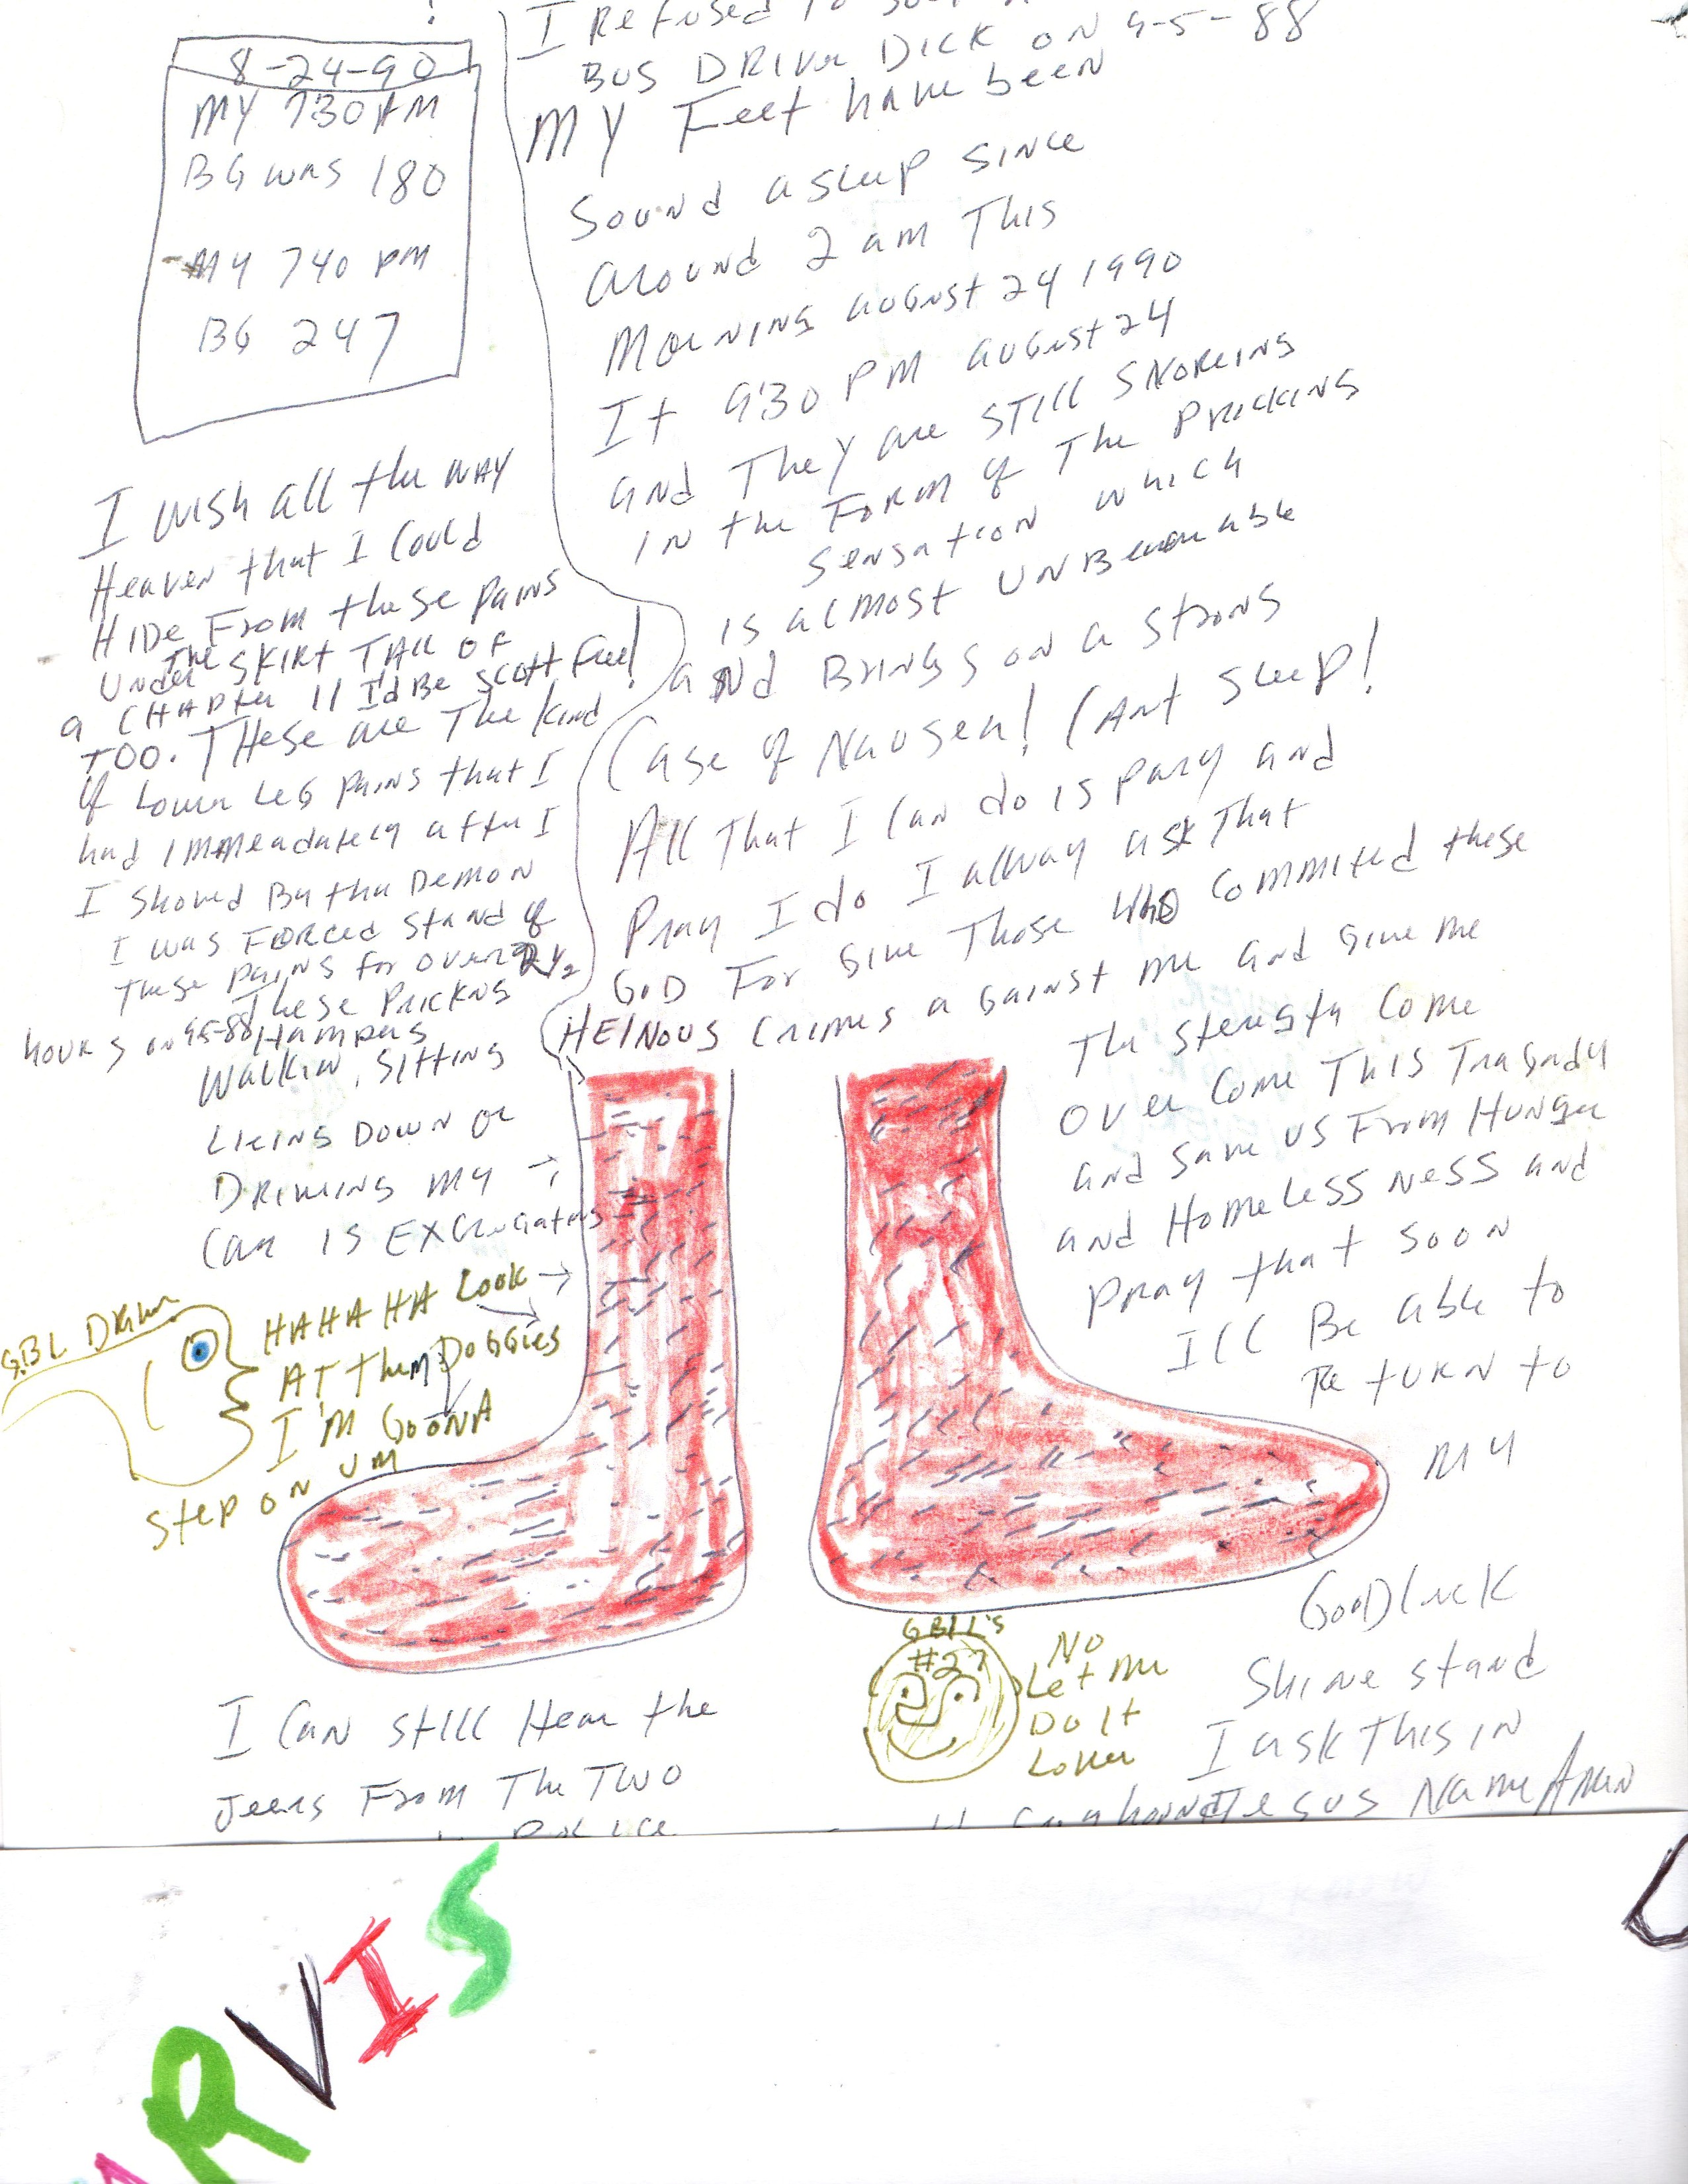 8-24-90
MY 730 AM
BG WAS 180
MY 740 PM
BG 247
I REFUSED TO
BUS DRIVER DICK ON 9-5-88
MY FEET have been
SOUND ASLEEP SINCE
AROUND 2 am This
MORNING AUGUST 24 1990
It 9:30 PM AUGUST 24
and They are STILL SNOREING
IN the FORM of The PRICKING
Sensation which
is almost UNBEARABLE
and BRINGS on a STRONG
Case of Nausea! CANT Sleep!
All That I can do is Pary and
Pray I do I allway ask That
GOD For Give Those WHO Committed these
HEINOUS Crimes against me and Give me
The STENGTH Come
OVER Come This Tragady
and Save US From Hunger
and HOMELESS NESS and
Pray that SOON
ILL Be able to
Re TURN to
MY
GOOD luck
Shine stand
I ask This in
Jesus Name Amen
I WISH all the WAY
Heaven that I Could
HIDE From these PAINS
UNDER The SKIRT TAIL OF
a CHAPTER 11 I'd BE SCOTT FREE!
TOO. THESE are The Kind
of Lower LEG PAINS that I
had IMMEADATELY after I
I SHOVED By tha DEMON
I was FORCED STAND of
These PAINS for over 2 1/2
hours on 9-5-88 These PRICKNG
Hampers
WALKIN, SITTING
LIEING DOWN or
DRIVEING MY →
Car IS EXCRUCIATING
GBL DRIVER
HA HA HA Look →
AT Them Doggies
I'M GOONA
Step ON UM
GBLL'S
#27
NO
Let Me
Do It
Lover
I Can STILL Hear the
Jeers From The TWO
RVIS